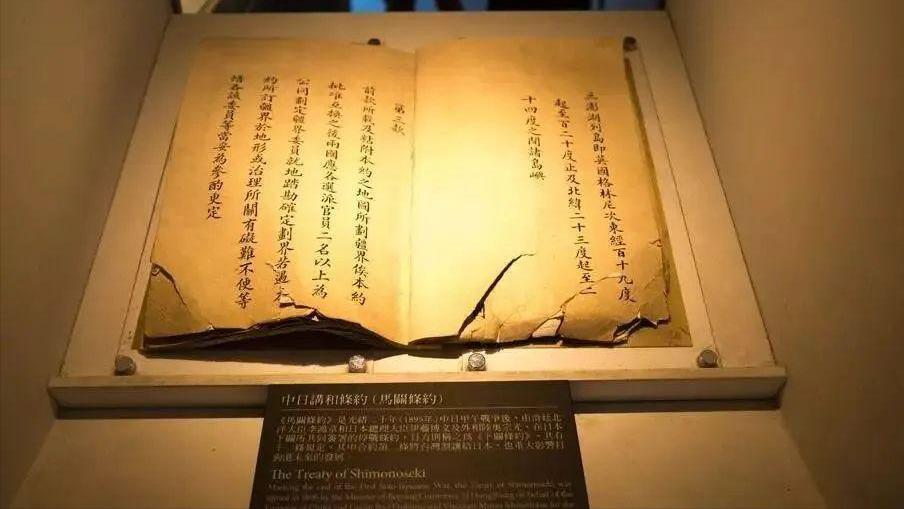 三澎湖列島即英國格林尼次東經百十九度
起至百二十度止及北緯二十三度起至二
十四度之間諸島嶼
第三款
前款所載及黏附本約之地圖所劃疆界俟本約
批准互換之後兩國應各選派官員二名以上為
公同劃定疆界委員就地踏勘確定劃界若遇本
約所訂疆界於地形或治理所關有礙難不便等
情各該委員等當妥為參酌更定
中日講和條約(馬關條約)
《馬關條約》是光緒二十年(1895年)中日甲午戰爭後，由清廷北
洋大臣李鴻章和日本總理大臣伊藤博文及外相陸奧宗光，在日本
下關所共同簽署的停戰條約，日方則稱之為《下關條約》。共有
十一條規定，其中合約第二條將台灣割讓給日本，也重大影響日
後
未來的發展。
The Treaty of Shimonoseki
Marking the end of the First Sino-Japanese War, the Treaty of Shimonoseki was
signed in 1895 by the Minister of Beiyang
on behalf of the